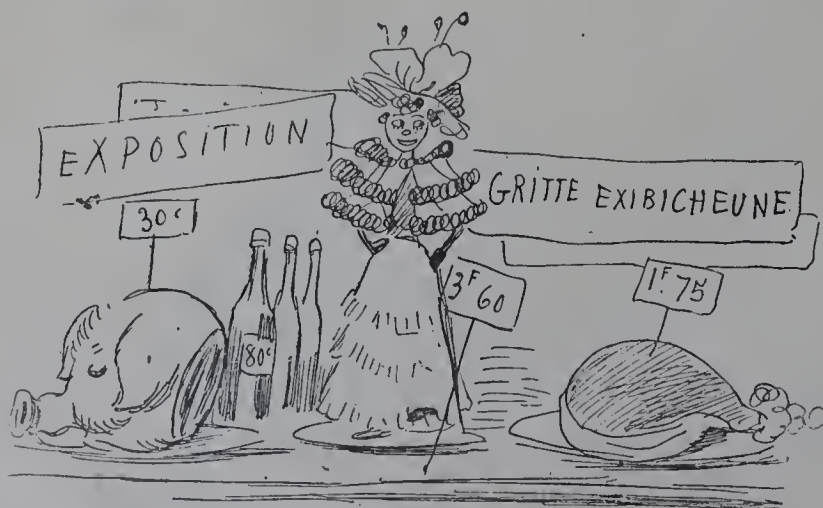 EXPOSITION
GRITTE EXIBICHEUNE
30c
80c
3F 60
1F. 75